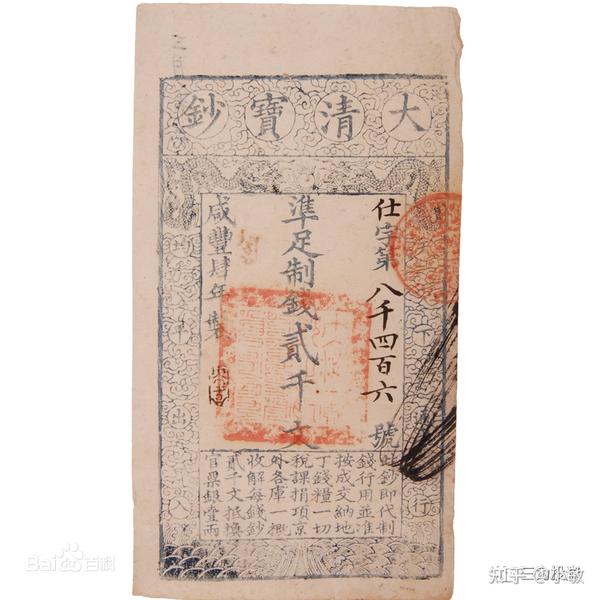 大清寶鈔
天下通行
仕字第八千四百六號
準足制錢貳千文
咸豐肆年製
均平出入
此鈔即代制
錢行用並准
按成交納地
丁錢糧一切
稅課捐項京
外各庫一概
收解每錢鈔
貳千文抵換
官票銀壹兩
Bai百科
知乎